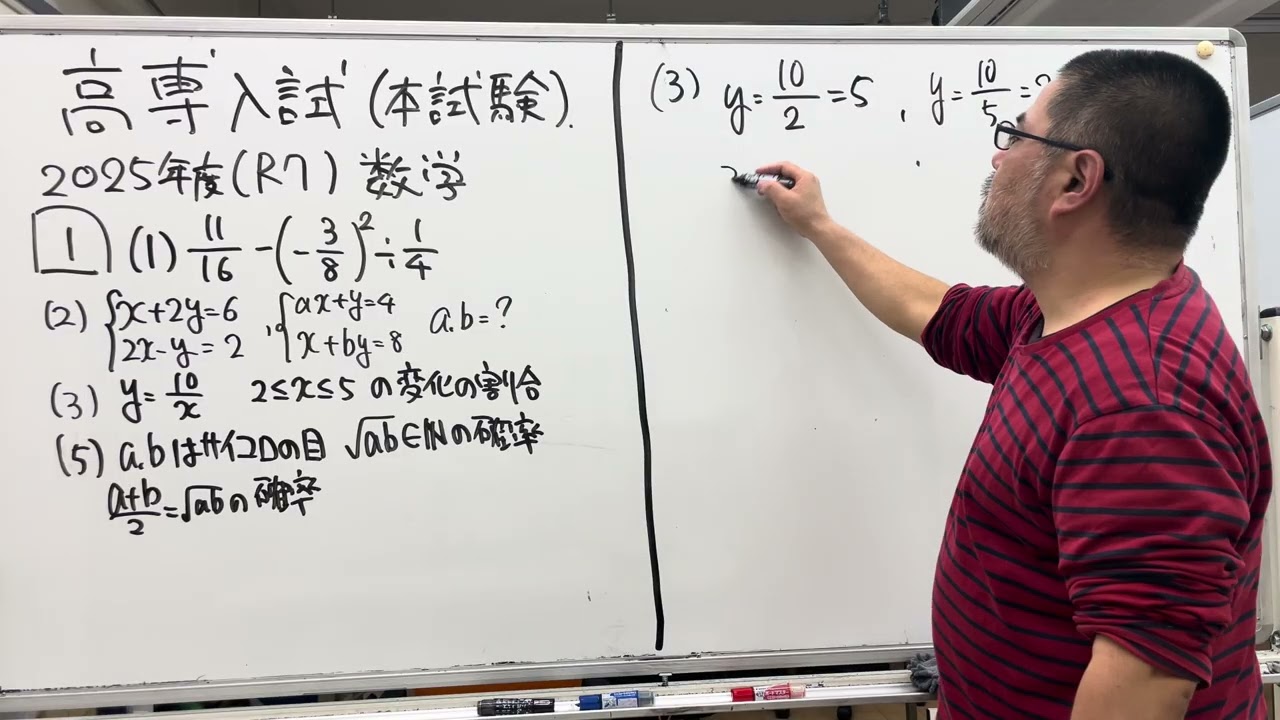 高専入試(本試験).
2025年度(R7) 数学
1 (1) 11/16 -(-3/8)^2 ÷ 1/4
(2) {x+2y=6 2x-y=2 , {ax+y=4 x+by=8 a.b=?
(3) y=10/x 2≤x≤5 の変化の割合
(5) a.bはサイコロの目 √ab∈ℕの確率
a+b/2=√abの確率
(3) y=10/2=5 , y=10/5=